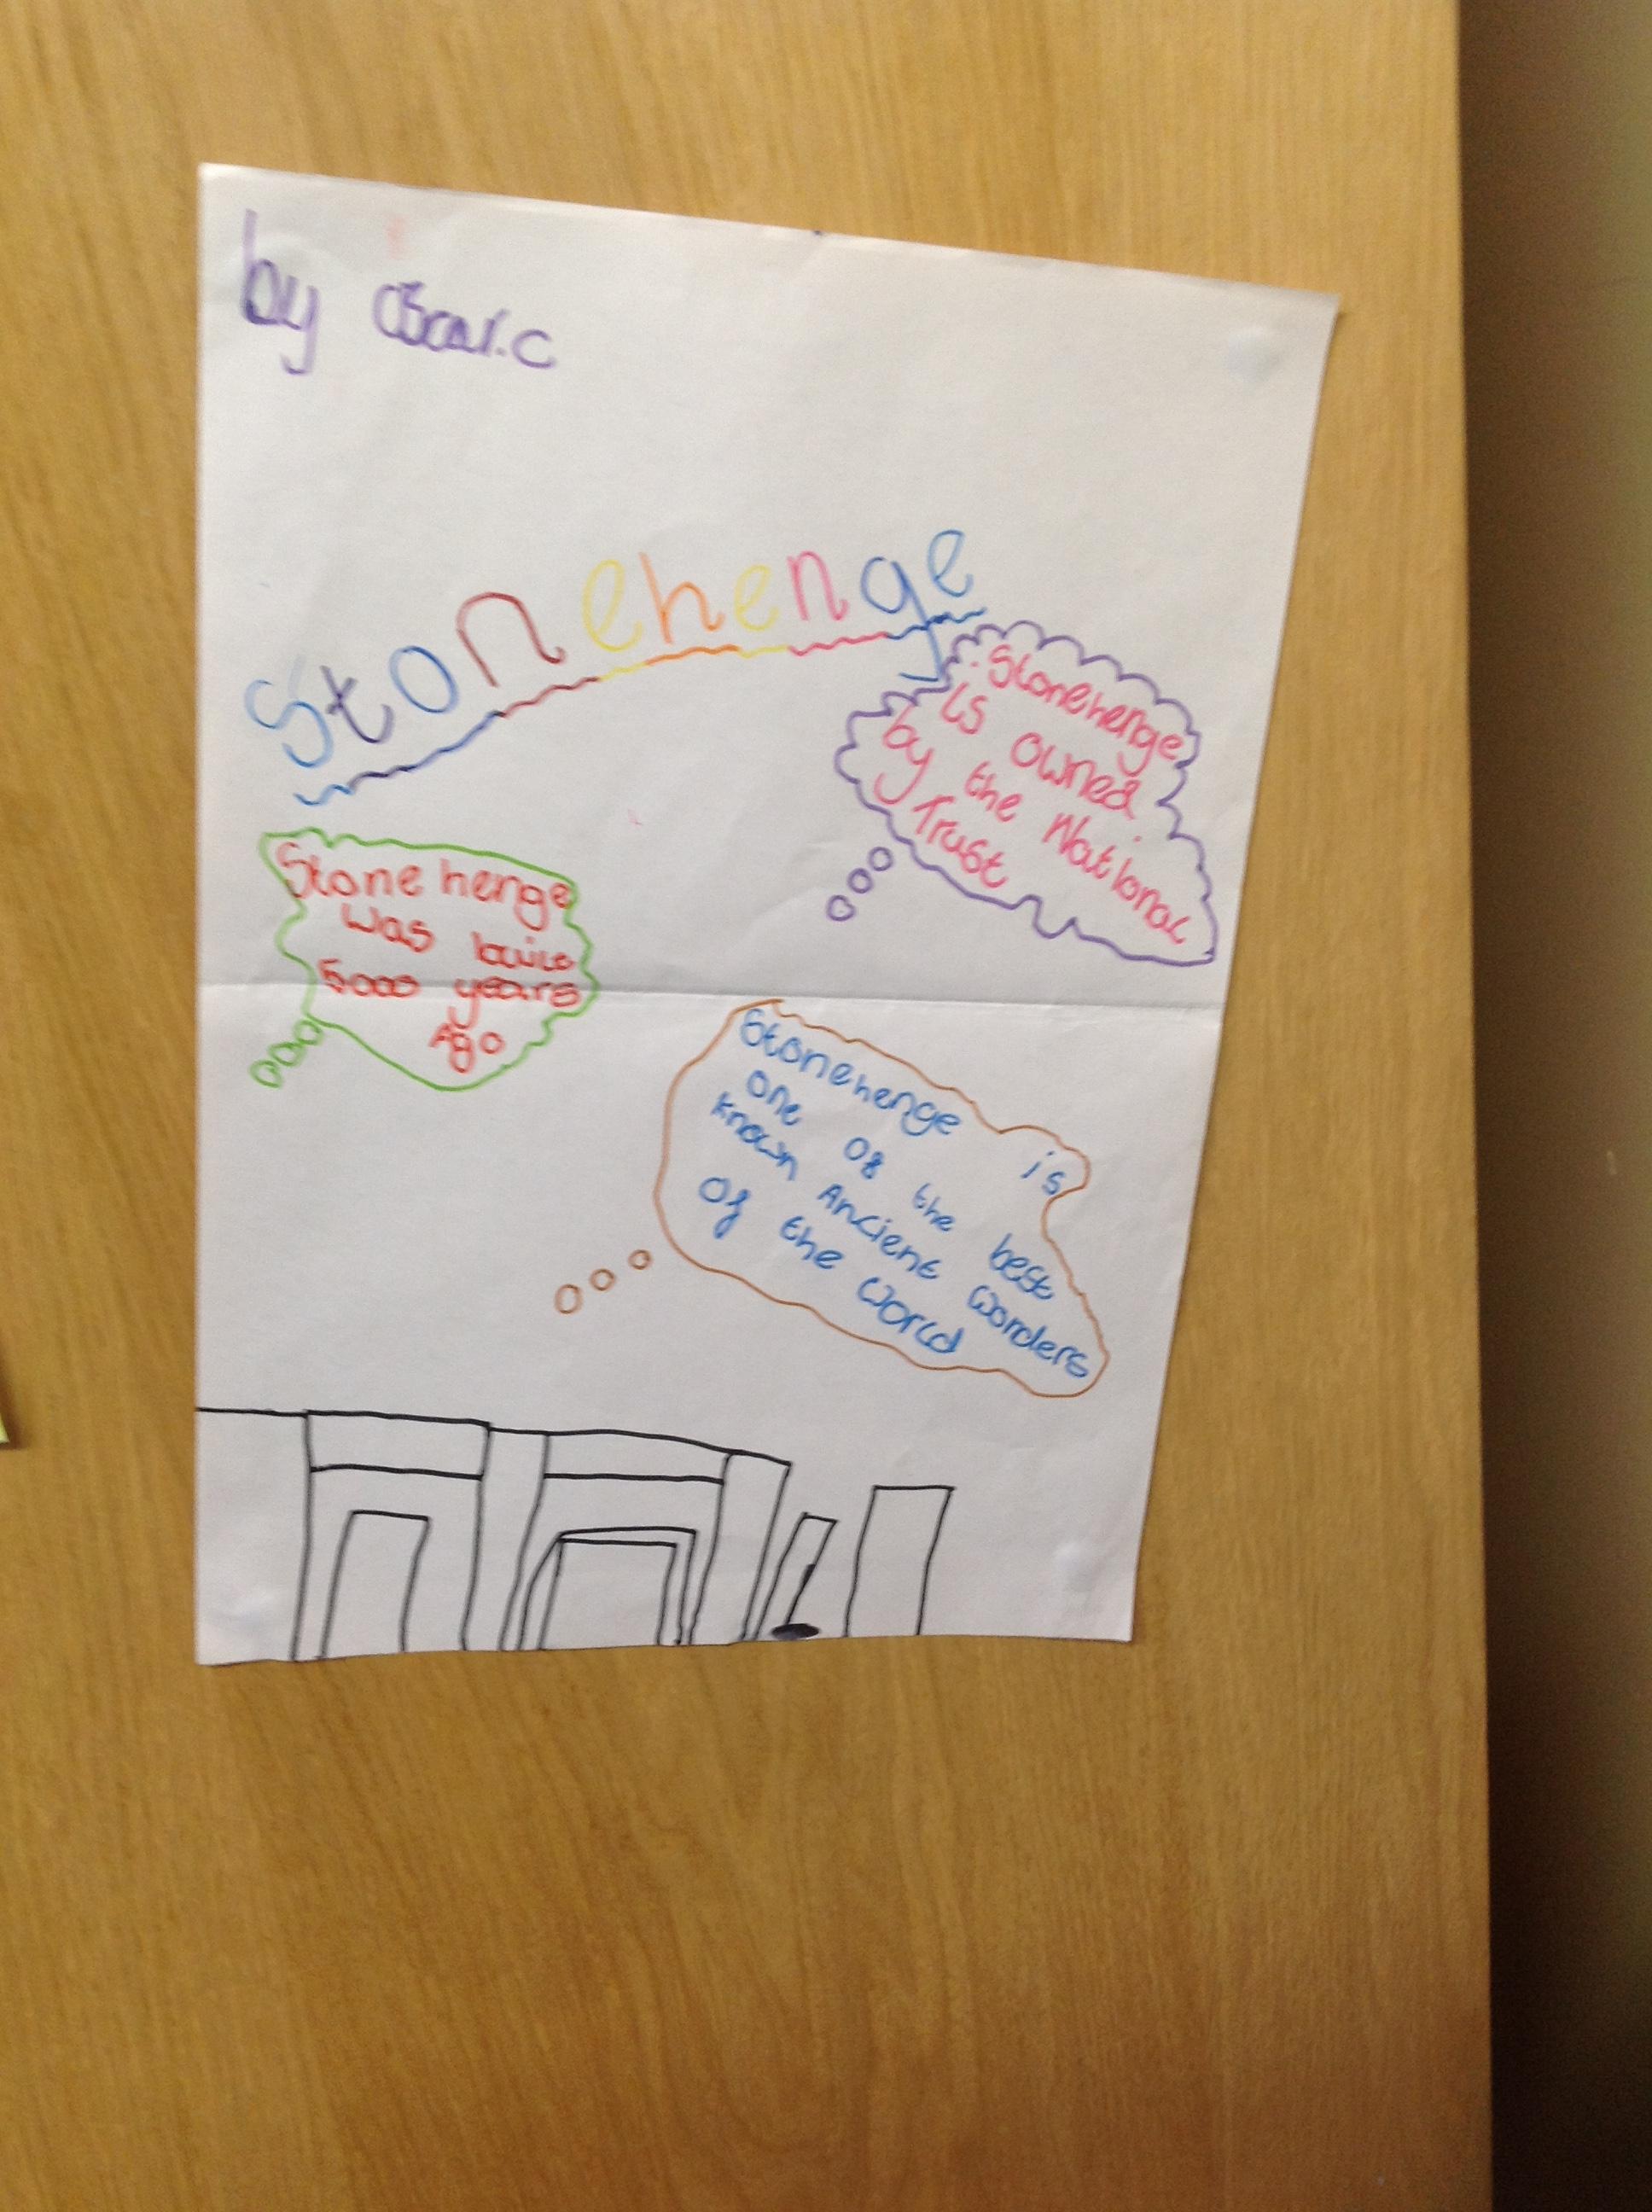 by Oscar.c
Stonehenge
Stonehenge
is owned
by the National
Trust
Stone henge
was built
5000 years
Ago
Stonehenge is
one of the best
known Ancient Wonders
of the world